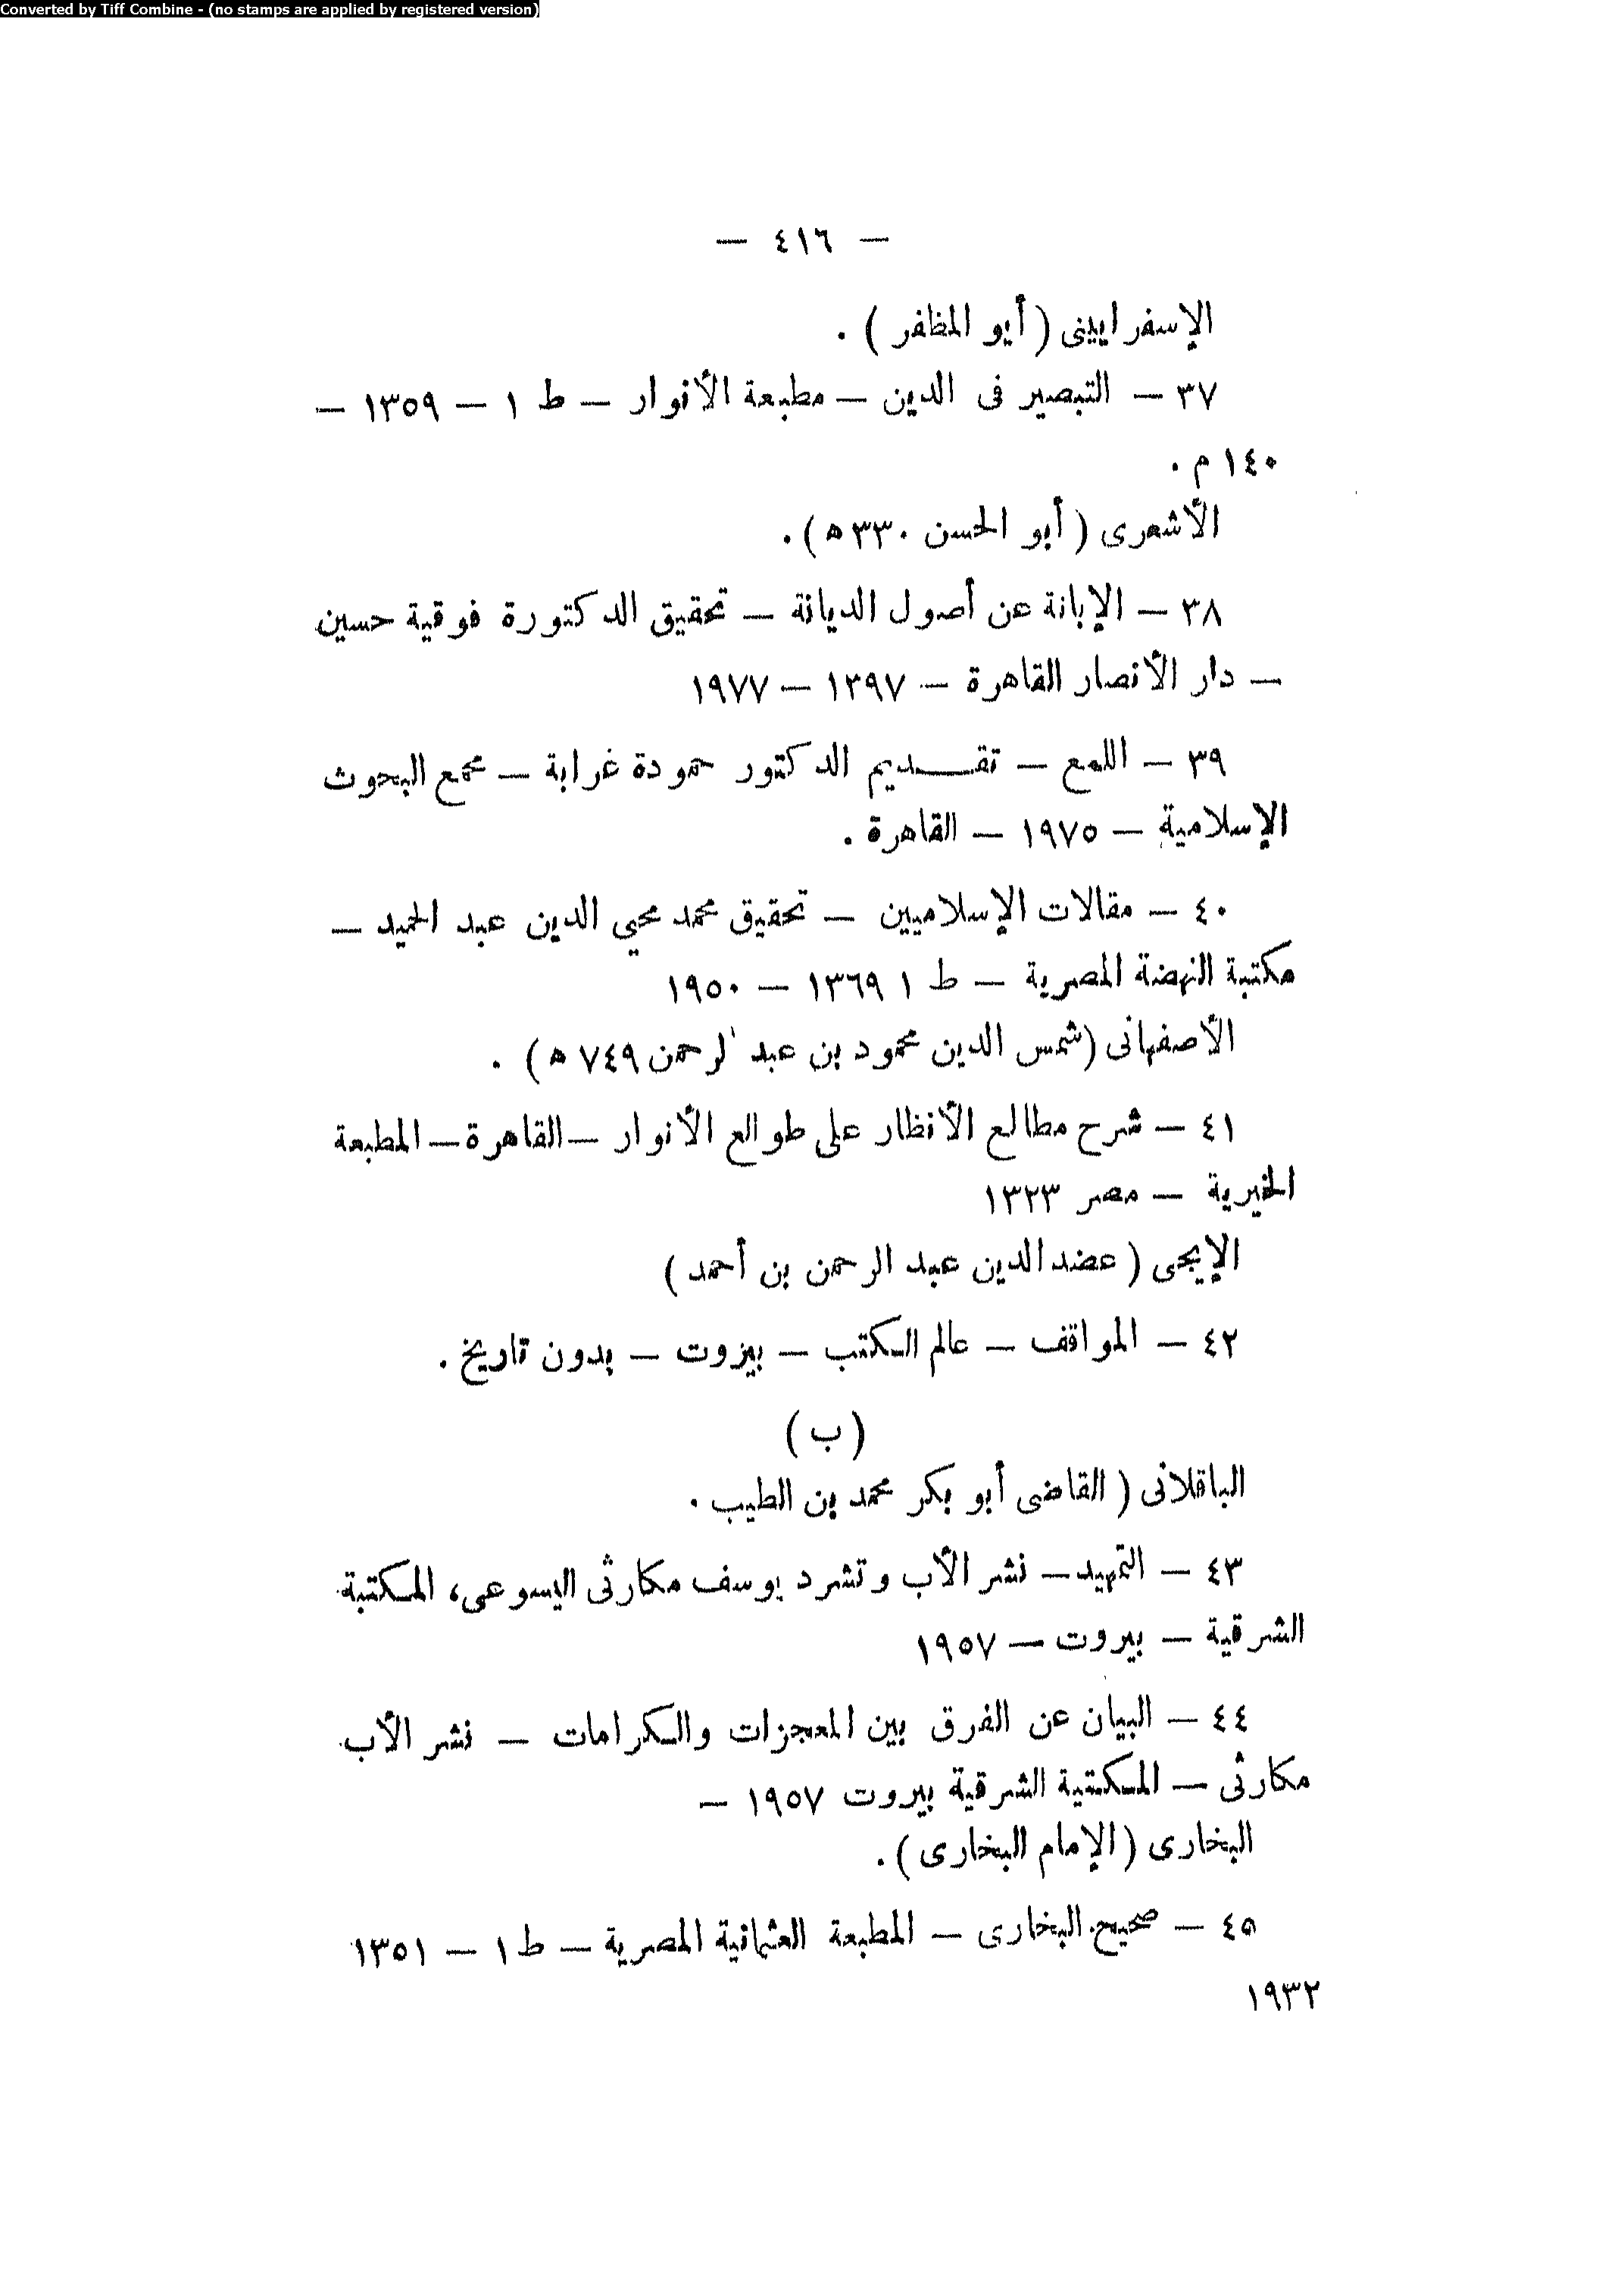 Converted by Tiff Combine - (no stamps are applied by registered version)
— ٤١٦ —
الإسفراييني (أبو المظفر) .
٣٧ — التبصير فى الدين — مطبعة الأنوار — ط ١ — ١٣٥٩ —
١٤٠ م .
الأشعرى (أبو الحسن ٣٣٠ ه) .
٣٨ — الإبانة عن أصول الديانة — تحقيق الدكتورة فوقية حسين
— دار الأنصار القاهرة — ١٣٩٧ — ١٩٧٧
٣٩ — اللمع — تقديم الدكتور حمودة غرابة — مجمع البحوث
الإسلامية — ١٩٧٥ — القاهرة .
٤٠ — مقالات الإسلاميين — تحقيق محمد محيي الدين عبد الحميد —
مكتبة النهضة المصرية — ط ١ ١٣٦٩ — ١٩٥٠
الأصفهانى (شمس الدين محمود بن عبد الرحمن ٧٤٩ ه) .
٤١ — شرح مطالع الأنظار على طوالع الأنوار — القاهرة — المطبعة
الخيرية — مصر ١٣٢٣
الإيجى (عضد الدين عبد الرحمن بن أحمد)
٤٢ — المواقف — عالم الكتب — بيروت — بدون تاريخ .
(ب)
الباقلانى (القاضى أبو بكر محمد بن الطيب .
٤٣ — التمهيد — نشر الأب وتشرد يوسف مكارثى اليسوعى، المكتبة
الشرقية — بيروت — ١٩٥٧
٤٤ — البيان عن الفرق بين المعجزات والكرامات — نشر الأب
مكارثى — المكتبة الشرقية بيروت ١٩٥٧ —
البخارى (الإمام البخارى) .
٤٥ — صحيح البخارى — المطبعة العثمانية المصرية — ط ١ — ١٣٥١
١٩٣٢